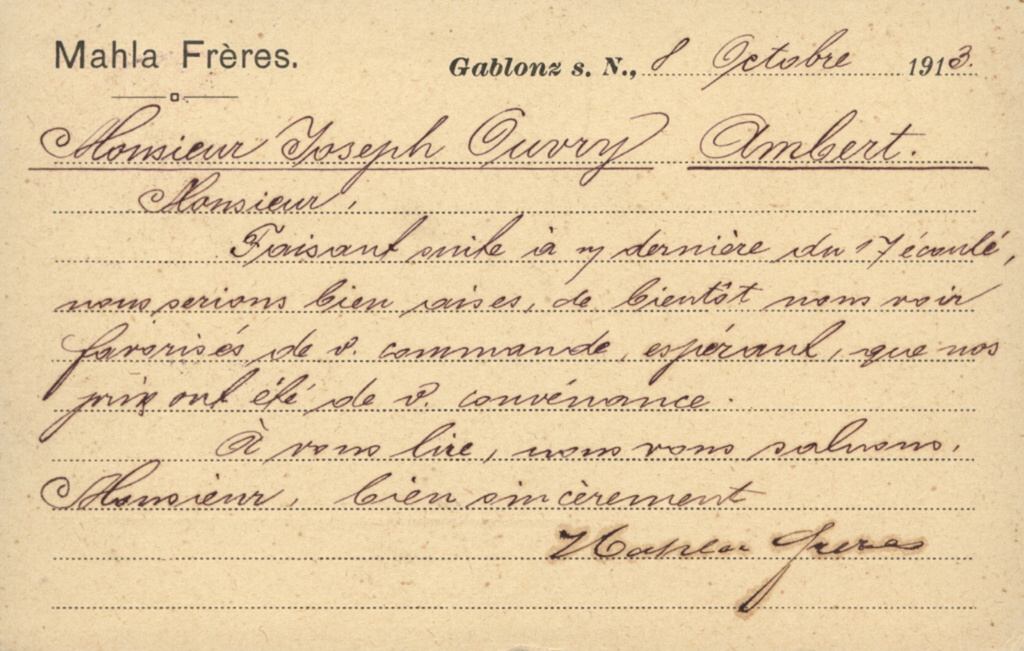 Mahla Frères.
Gablonz s. N., 8 Octobre 1913.
Monsieur Joseph Ouvry Ambert.
Monsieur,
Faisant suite à n/ dernière du 17 écoulé,
nous serions bien aises, de bientôt nous voir
favorisés de v. commande, espérant, que nos
prix ont été de v. convénance.
À vous lire, nous vous saluons,
Monsieur, bien sincèrement
Mahla Frères